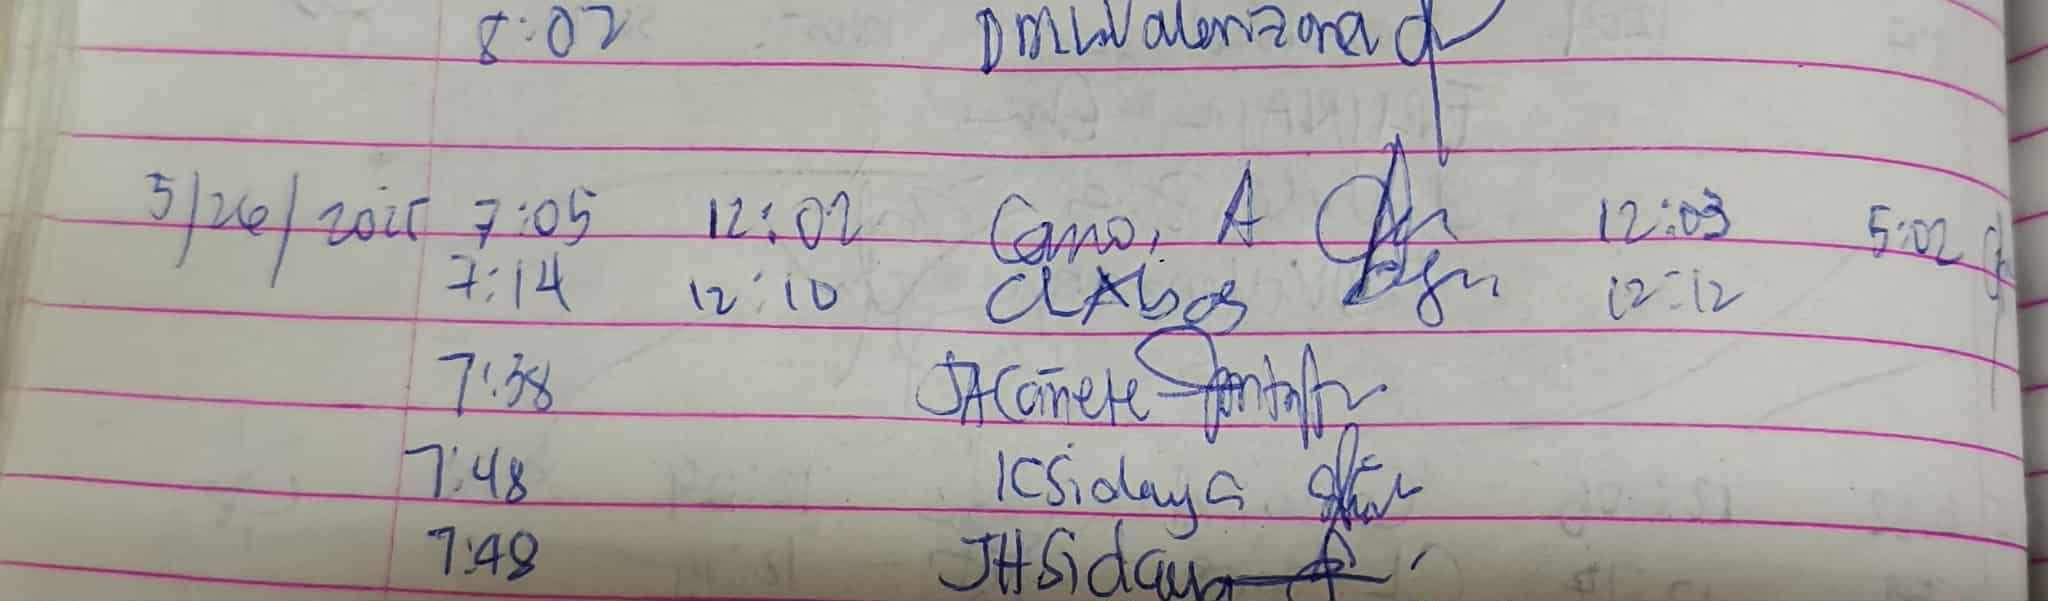 8:02 DMLValenzona
5/26/2025 7:05 12:02 Cano, A 12:03 5:02
7:14 12:10 CLAbos 12:12
7:38 JACañete
7:48 ICSidaya
7:48 JHSiday